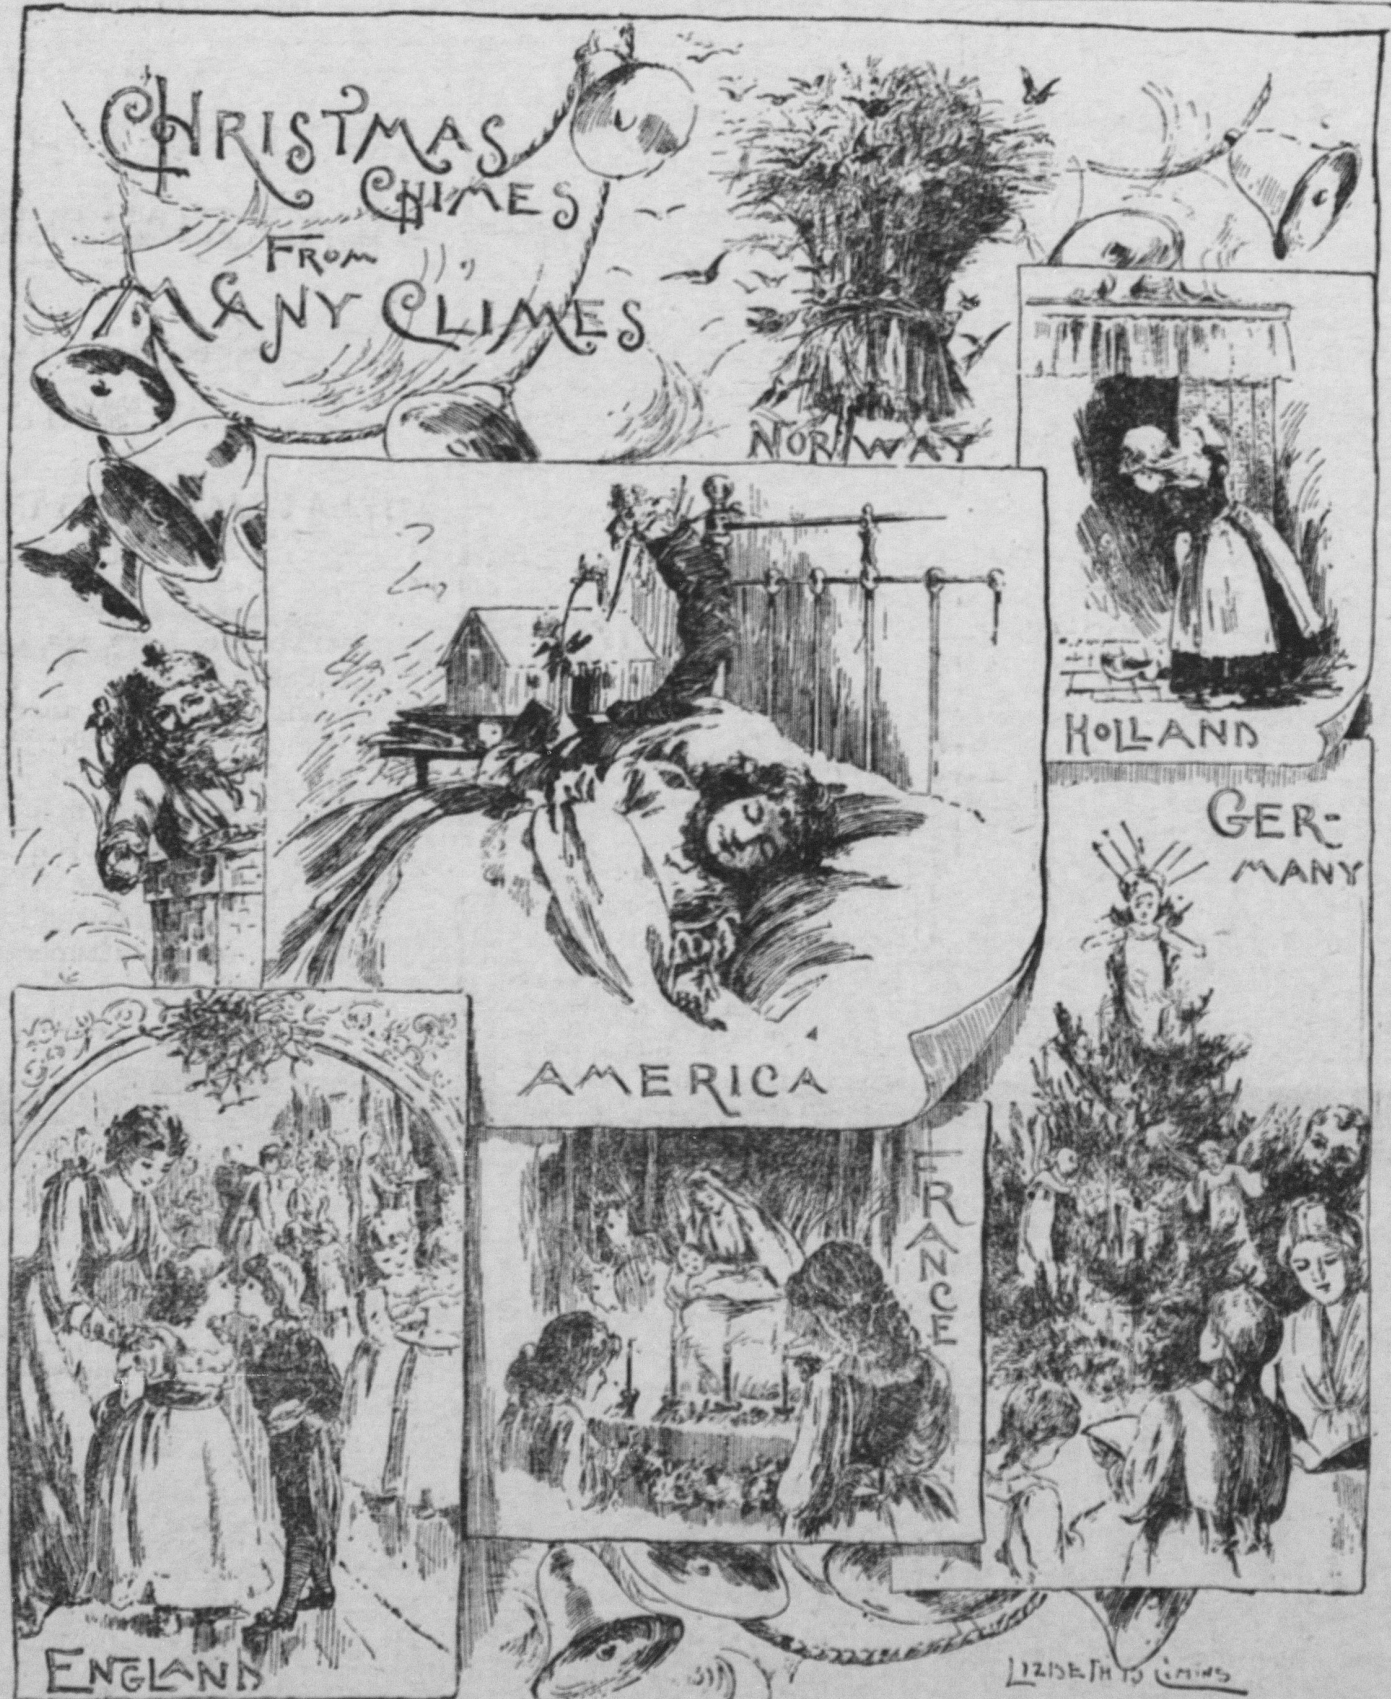 CHRISTMAS
CHIMES
FROM
MANY CLIMES
NORWAY
HOLLAND
GER-
MANY
AMERICA
FRANCE
ENGLAND